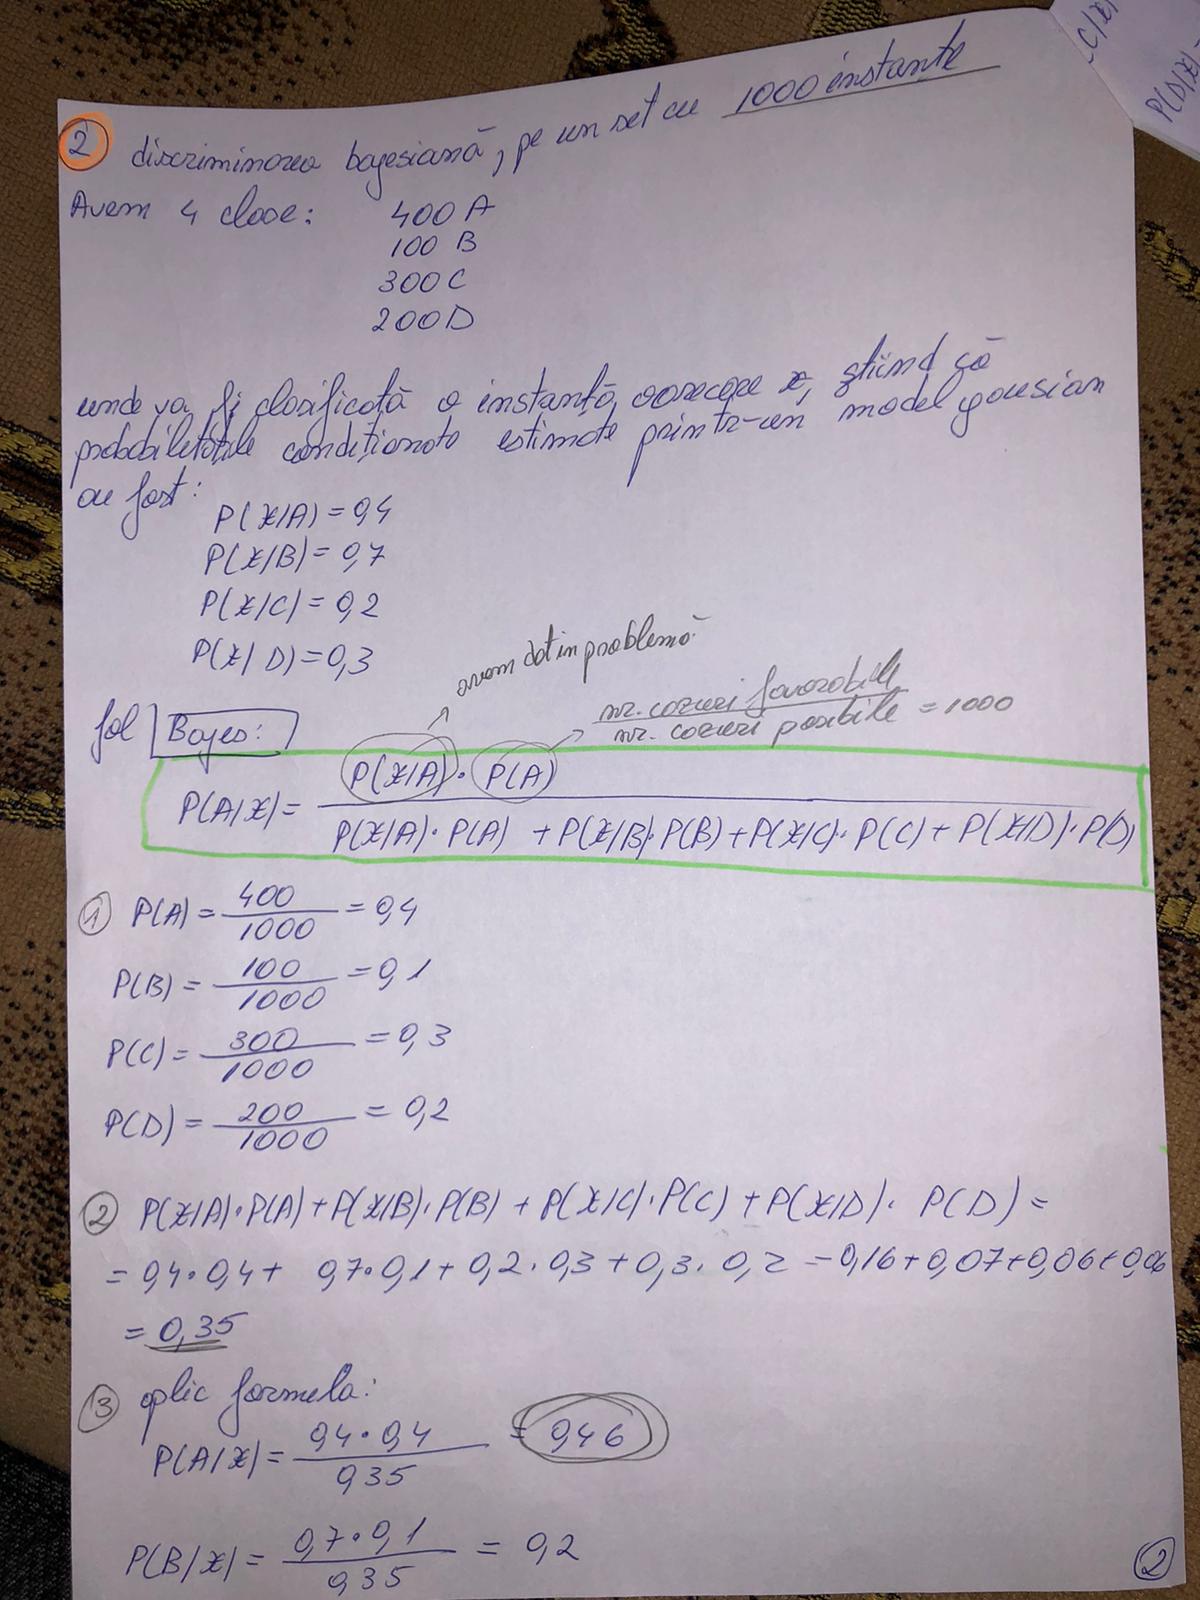 2 discriminarea bayesiană, pe un set cu 1000 instante
Avem 4 clase: 400 A
100 B
300 C
200 D
unde va fi clasificată o instantă oarecare x, știind că
probabilitățile condiționate estimate printr-un model gausian
au fost:
P(x/A) = 0,4
P(x/B) = 0,7
P(x/C) = 0,2
P(x/D) = 0,3
avem dat in problemă
nr. cazuri favorabile
nr. cazuri posibile = 1000
fol Bayes:
P(A/x) = P(x/A) · P(A)
P(x/A) · P(A) + P(x/B) · P(B) + P(x/C) · P(C) + P(x/D) · P(D)
1 P(A) = 400/1000 = 0,4
P(B) = 100/1000 = 0,1
P(C) = 300/1000 = 0,3
P(D) = 200/1000 = 0,2
2 P(x/A) · P(A) + P(x/B) · P(B) + P(x/C) · P(C) + P(x/D) · P(D) =
= 0,4 · 0,4 + 0,7 · 0,1 + 0,2 · 0,3 + 0,3 · 0,2 = 0,16 + 0,07 + 0,06 + 0,06
= 0,35
3 aplic formula:
P(A/x) = 0,4 · 0,4 / 0,35 = 0,46
P(B/x) = 0,7 · 0,1 / 0,35 = 0,2
2
C/x)
P(D/x) =